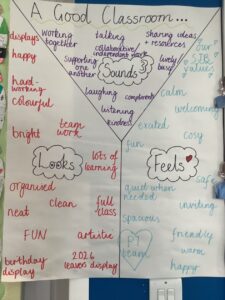 A Good Classroom...
displays
working
together
talking
sharing ideas
+ resources
happy
collaborative/
independent work
supporting
one
another
Sounds
lively
busy
our
STR
values
hard-
working
laughing
compliments
calm
colourful
listening
kindness
welcoming
bright
team
work
excited
fun
cosy
Looks
lots of
learning
Feels
safe
organised
quiet when
needed
inviting
neat
clean
full
class
spacious
FUN
artistic
P7
team
friendly
warm
birthday
display
2026
leavers display
happy